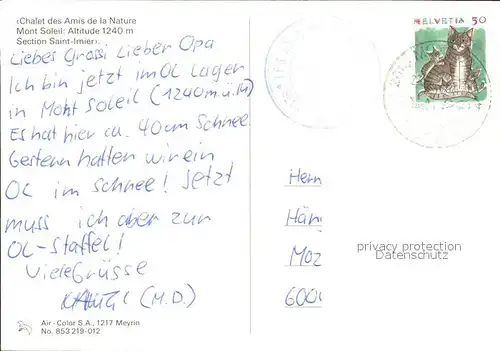 ‹Chalet des Amis de la Nature
Mont Soleil: Altitude 1240 m
Section Saint-Imier›.
Liebes Grossi Lieber Opa
Ich bin jetzt im OL Lager
in Mont Soleil (1240m.ü.M)
Es hat hier ca. 40cm Schnee.
Gestern hatten wir ein
OL im schnee! Jetzt
muss ich aber zur
OL-Staffel!
Viele Grüsse
(M.D.)
HELVETIA 50
Herrn
Hän
Moz
600
privacy protection
DELCAMPE.NET
Air-Color S.A., 1217 Meyrin
No. 853 219-012